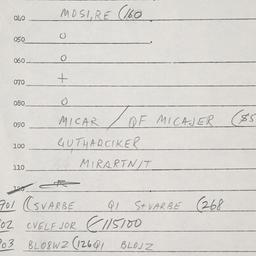 040 MDSI,RE (160
050 O
060 O
070 +
080 O
090 MICAR / QF MICAJER (85
100 GUTHADCIKER
110 MIRARTNIT
901 (SVARBE QI S+VARBE (268
902 CVELFJOR (/115100
903 BLO8WZ (126QI BLOJZ